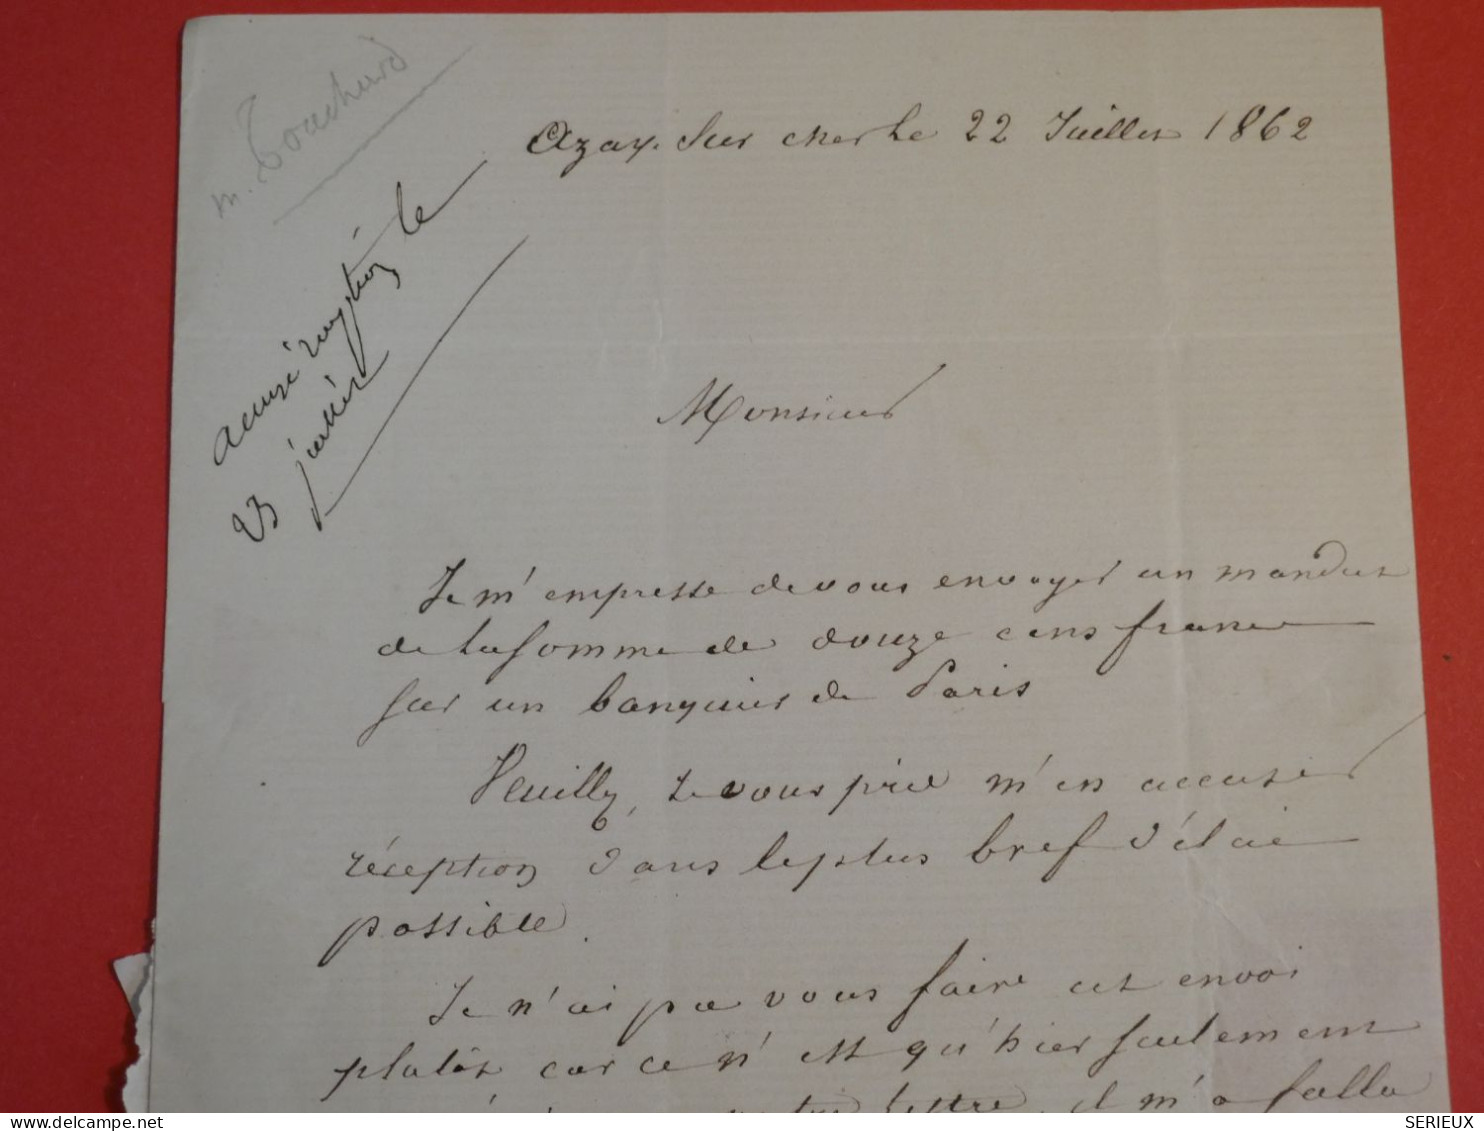 m. Touchard
accusé réception le
23 juillet
Azay sur cher le 22 Juillet 1862
Monsieur
Je m'empresse de vous envoyer un mandat
de la somme de douze cens francs
sur un banquier de Paris
Veuillez, je vous prie m'en accuser
réception dans le plus bref délai
possible.
Je n'ai pu vous faire cet envoi
plutôt car ce n'est qu'hier seulement
lettre, il m'a fallu
SERIEUX